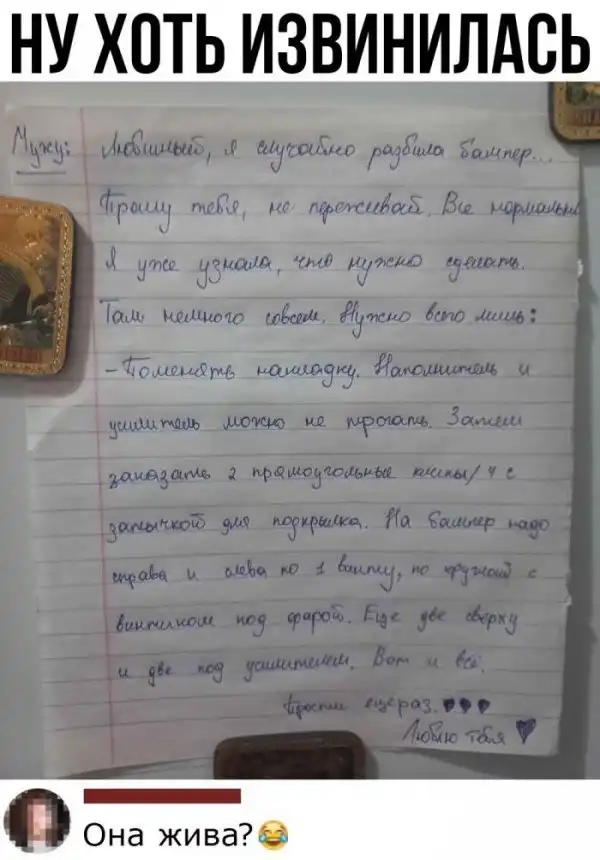 НУ ХОТЬ ИЗВИНИЛАСЬ
Мужу: Любимый, я случайно разбила бампер...
Прошу тебя, не переживай. Все нормально
Я уже узнала, что нужно сделать.
Там немного совсем. Нужно всго лишь:
- Поменять накладку. Наполнитель и
усилитель можно не трогать. Затем
заказать 2 прямоугольные клипсы/ 4 с
запычкой для подкрылка. На бампер надо
справа и слева по 1 винту, по с
винтиком под фарой. Еще две сверху
и две под усилителем. Вот и всё.
Прости еще раз. ♥♥♥
Люблю тебя ♥
Она жива?😂